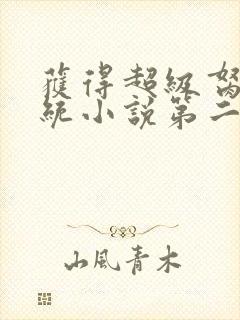 獲得超級
統小說第二
山風青木